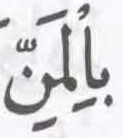 بِالْمَنِّ